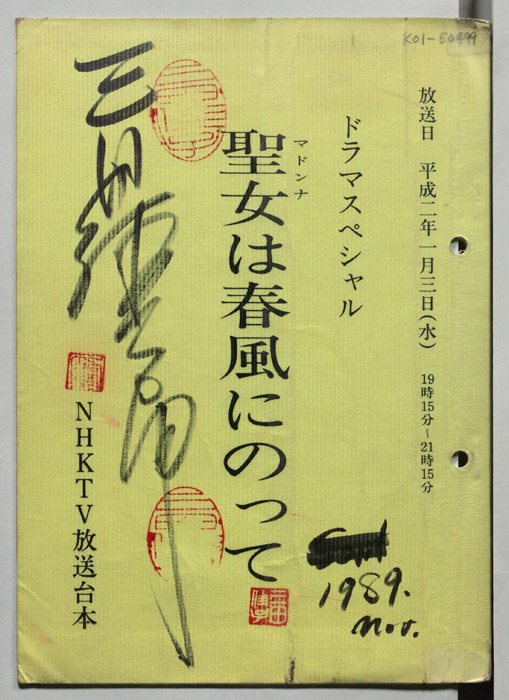 K01-50499
放送日 平成二年一月三日(水) 19時15分～21時15分
ドラマスペシャル
マドンナ
聖女は春風にのって
NHKTV放送台本
1989.
Nov.